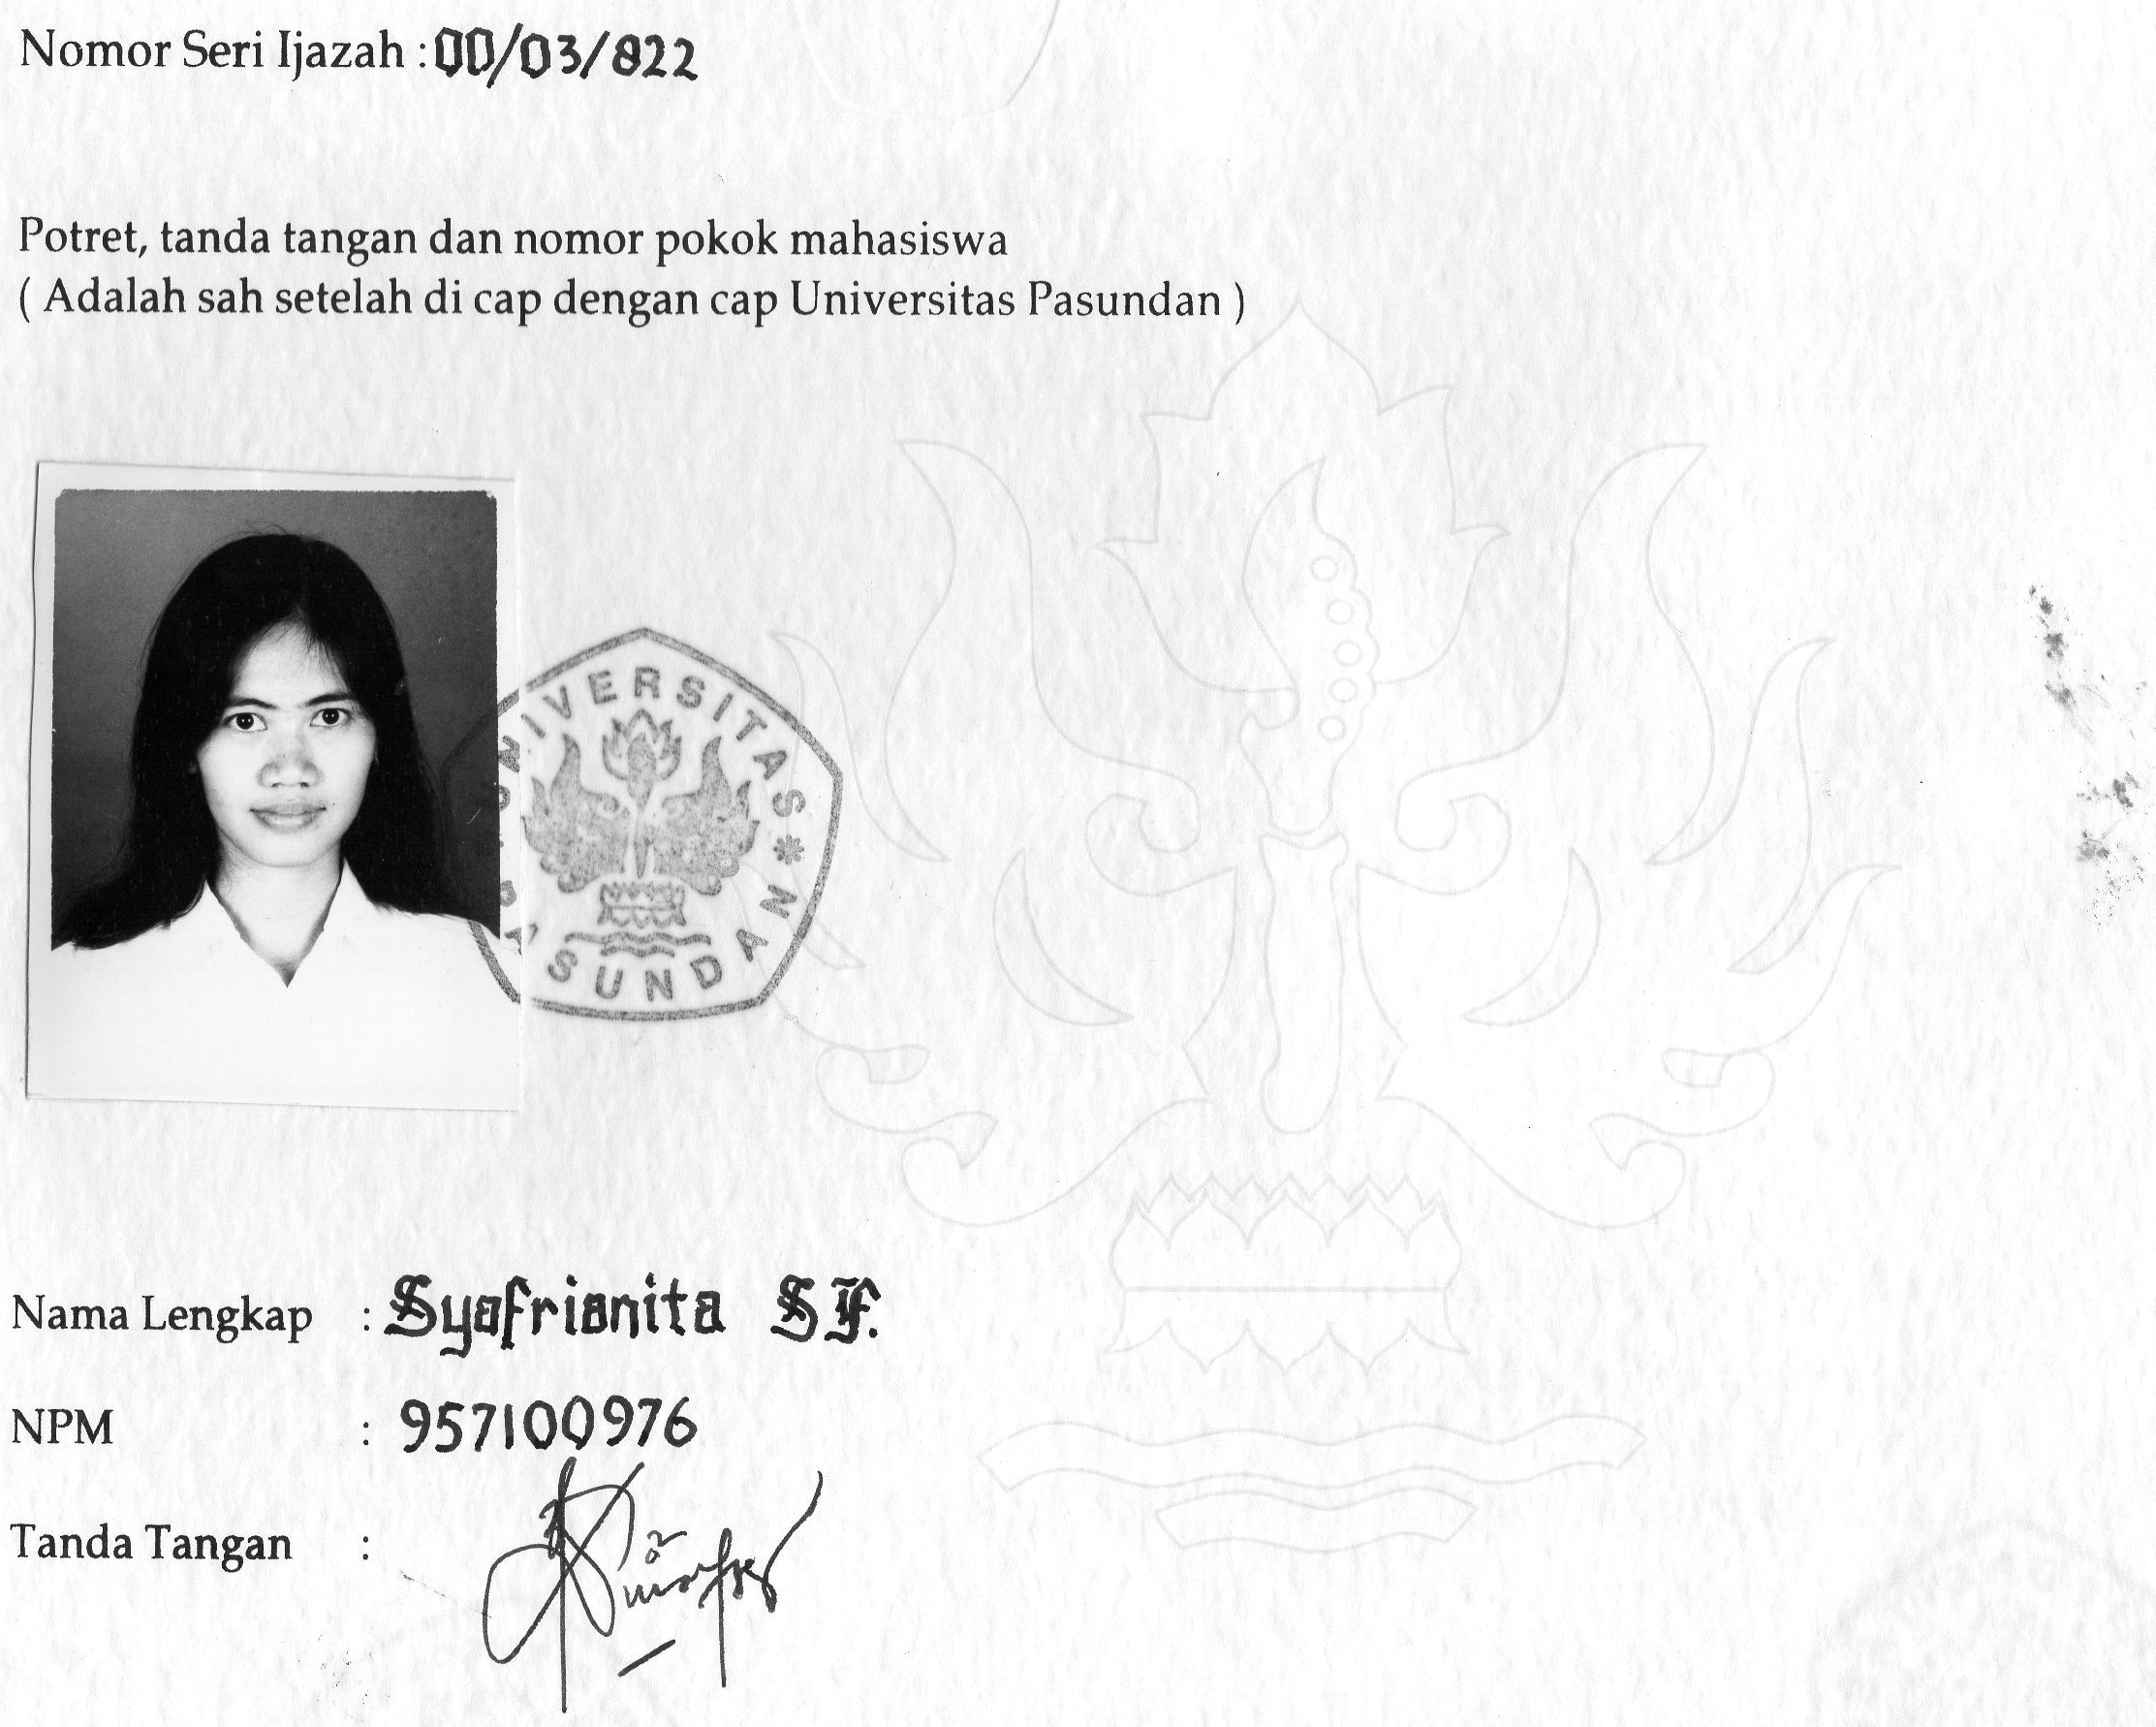 Nomor Seri Ijazah : 00/03/822
Potret, tanda tangan dan nomor pokok mahasiswa
( Adalah sah setelah di cap dengan cap Universitas Pasundan )
UNIVERSITAS * PASUNDAN
Nama Lengkap : Syafrianita SF.
NPM : 957100976
Tanda Tangan :